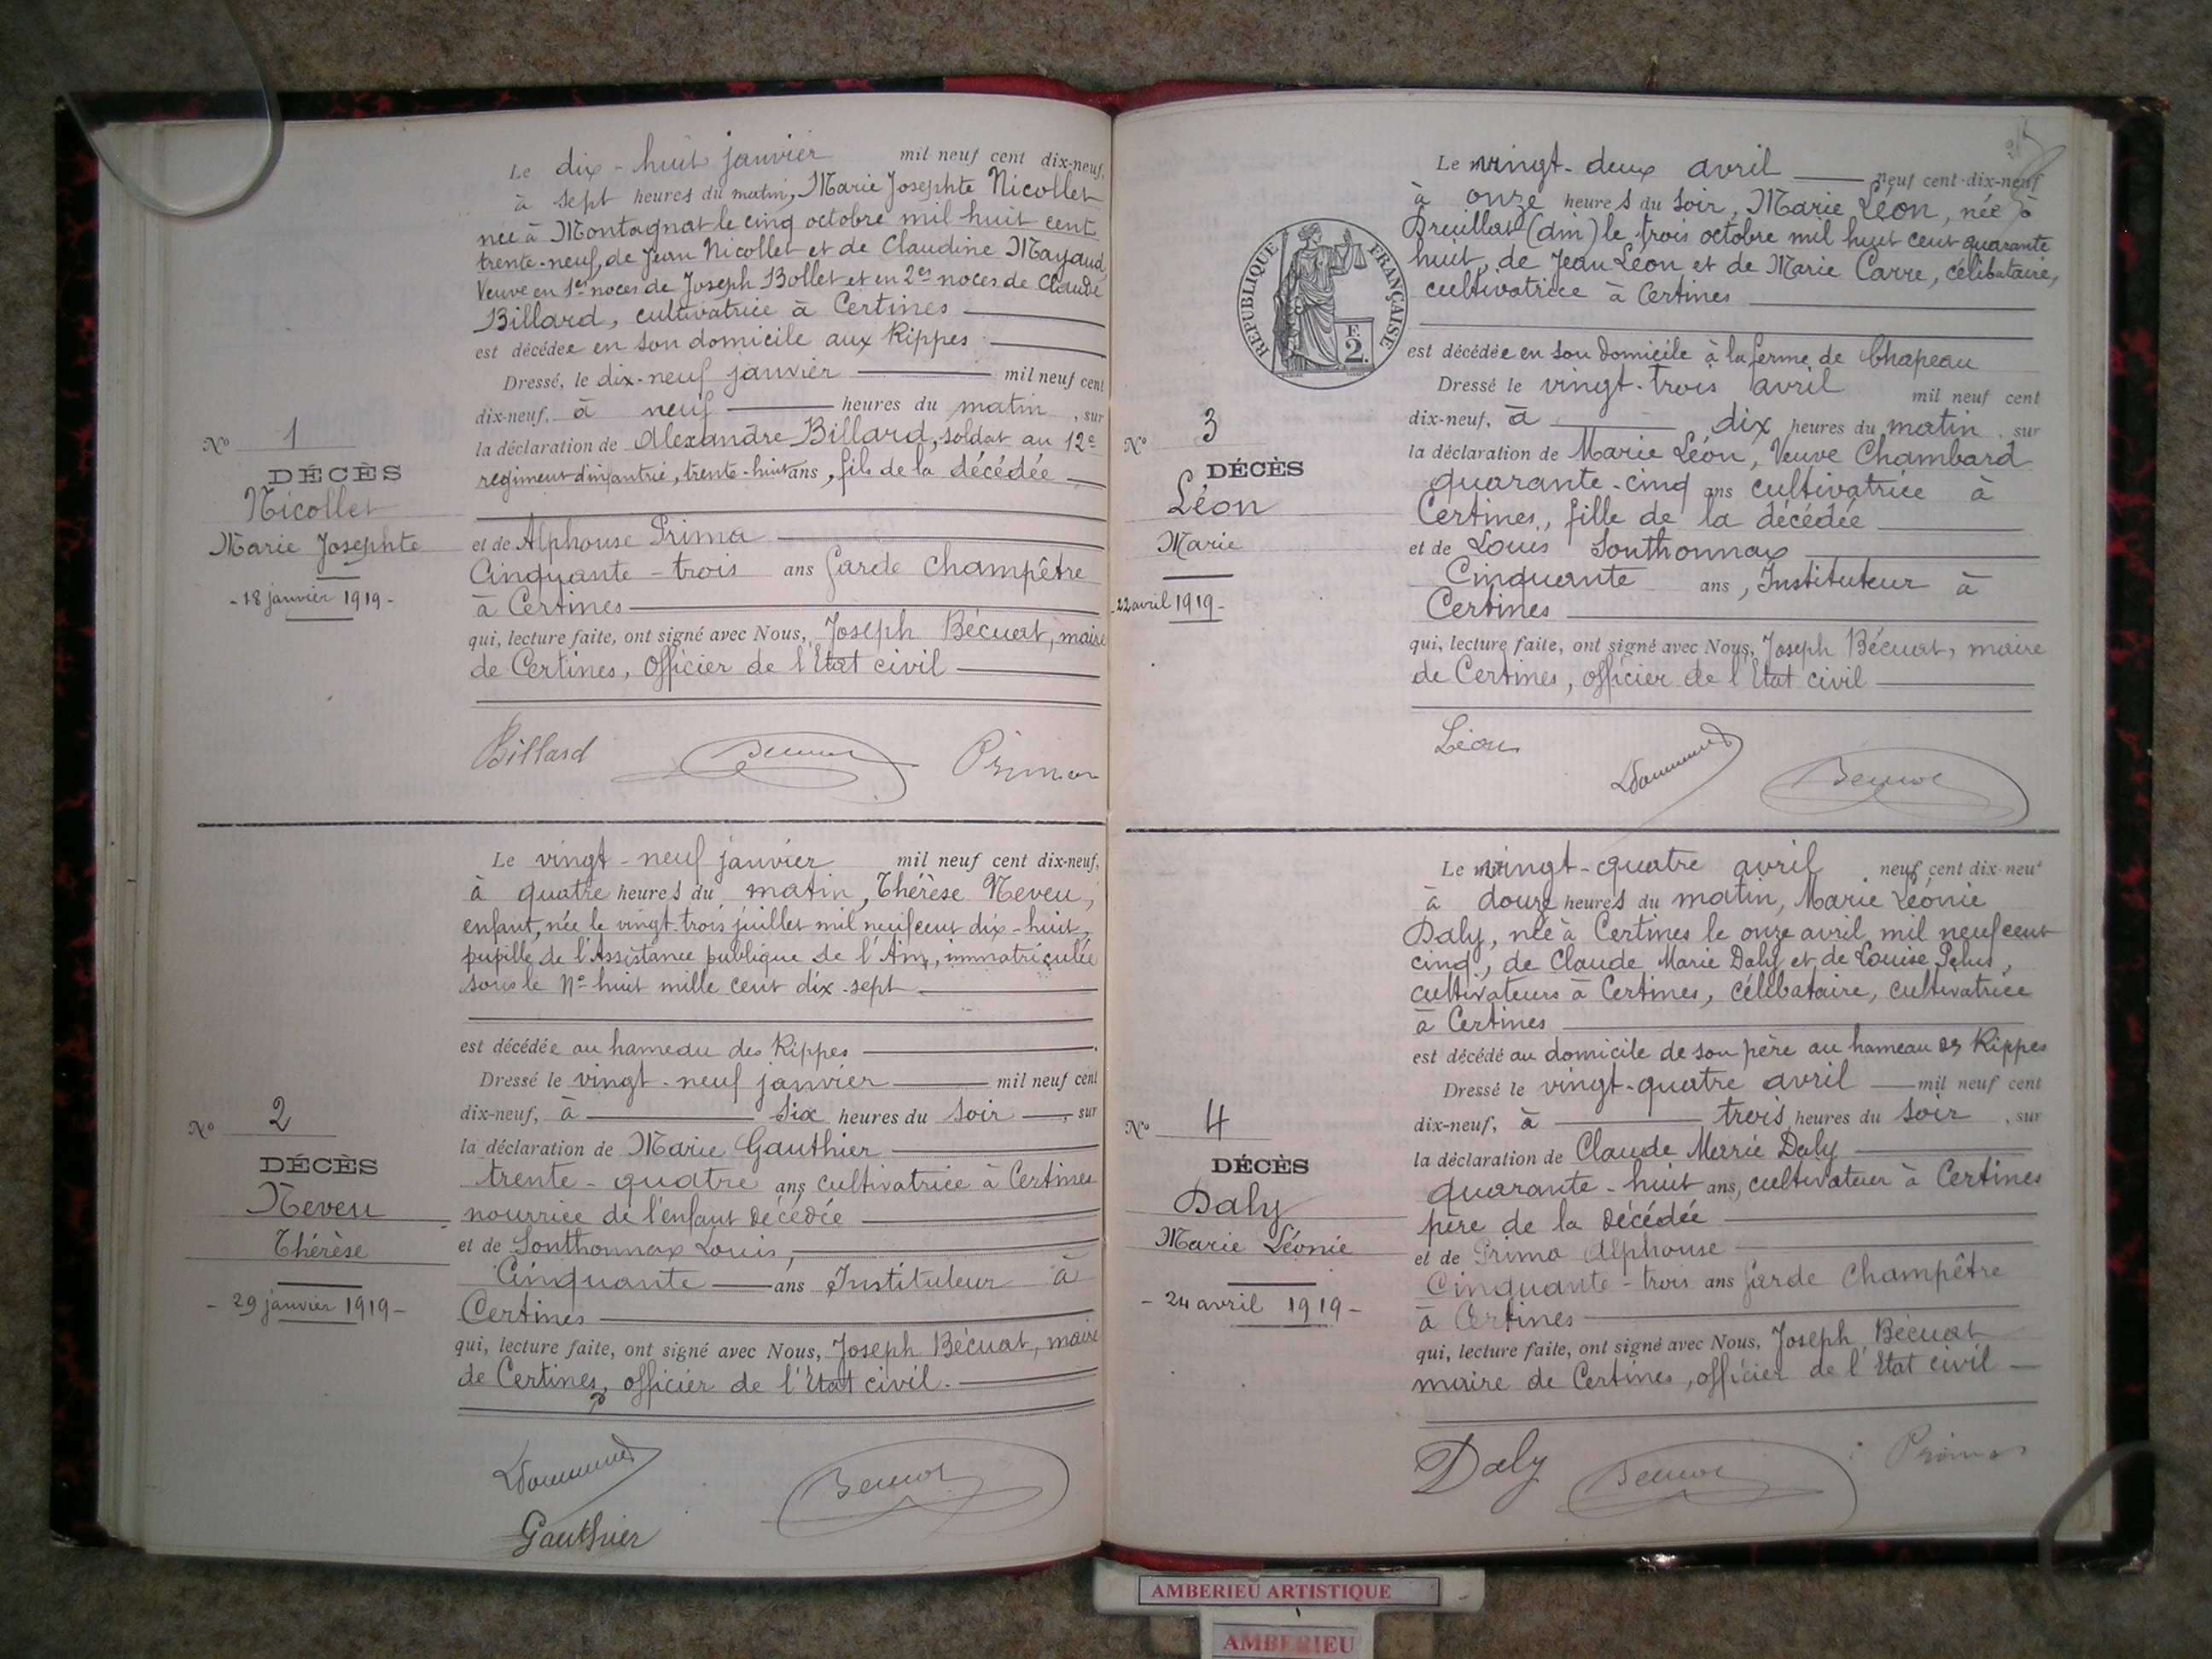 Le dix-huit janvier mil neuf cent dix-neuf,
à sept heures du matin, Marie Josephte Nicollet
née à Montagnat le cinq octobre mil huit cent
trente-neuf, de Jean Nicollet et de Claudine Mayaud,
Veuve en 1es noces de Joseph Bollet et en 2es noces de Claude
Billard, cultivatrice à Certines
est décédée en son domicile aux Rippes
Dressé, le dix-neuf janvier mil neuf cent
dix-neuf, à neuf heures du matin, sur
la déclaration de Alexandre Billard, soldat au 12e
regiment dinfantrie, trente-huit ans, fils de la décédée
et de Alphonse Prima
Cinquante-trois ans Garde Champêtre
à Certines
qui, lecture faite, ont signé avec Nous, Joseph Bécuat, maire
de Certines, Officier de l'Etat civil
Billard Prima
No 1
DÉCÈS
Nicollet
Marie Josephte
-18 janvier 1919-
Le vingt-neuf janvier mil neuf cent dix-neuf,
à quatre heures du matin, Thérèse Neveu,
enfant, née le vingt-trois juillet mil neuf cent dix-huit,
pupille de l'Assistance publique de l'Ain, immatriculée
sous le No huit mille cent dix-sept
est décédée au hameau des Rippes
Dressé le vingt-neuf janvier mil neuf cent
dix-neuf, à six heures du soir, sur
la déclaration de Marie Gauthier
trente-quatre ans cultivatrice à Certines
nourrice de l'enfant décédée
et de Sonthonnax Louis,
Cinquante ans Instituteur à
Certines
qui, lecture faite, ont signé avec Nous, Joseph Bécuat, maire
de Certines, officier de l'Etat civil.
Gauthier
No 2
DÉCÈS
Neveu
Thérèse
-29 janvier 1919-
Le vingt-deux avril neuf cent-dix-neuf
à onze heures du soir, Marie Léon, née à
Druillat (Ain) le trois octobre mil huit cent quarante
huit, de Jean Léon et de Marie Carre, célibataire,
cultivatrice à Certines
est décédée en son domicile à la ferme de Chapeau
Dressé le vingt-trois avril mil neuf cent
dix-neuf, à dix heures du matin sur
la déclaration de Marie Léon, Veuve Chambard
quarante-cinq ans cultivatrice à
Certines, fille de la décédée
et de Louis Sonthonnax
Cinquante ans, Instituteur à
Certines
qui, lecture faite, ont signé avec Nous, Joseph Bécuat, maire
de Certines, officier de l'Etat civil
Léon
REPUBLIQUE FRANÇAISE
F.
2.
No 3
DÉCÈS
Léon
Marie
-22 avril 1919-
Le vingt-quatre avril neuf cent dix-neuf
à douze heures du matin, Marie Léonie
Daly, née à Certines le onze avril mil neuf cent
cinq, de Claude Marie Daly et de Louise Pelus,
cultivateurs à Certines, célibataire, cultivatrice
à Certines
est décédé au domicile de son père au hameau des Rippes
Dressé le vingt-quatre avril mil neuf cent
dix-neuf, à trois heures du soir, sur
la déclaration de Claude Marie Daly
quarante-huit ans, cultivateur à Certines
père de la décédée
et de Prima Alphonse
Cinquante-trois ans Garde Champêtre
à Certines
qui, lecture faite, ont signé avec Nous, Joseph Bécuat
maire de Certines, officier de l'Etat civil
Daly Prima
No 4
DÉCÈS
Daly
Marie Léonie
-24 avril 1919-
AMBERIEU ARTISTIQUE
AMBERIEU